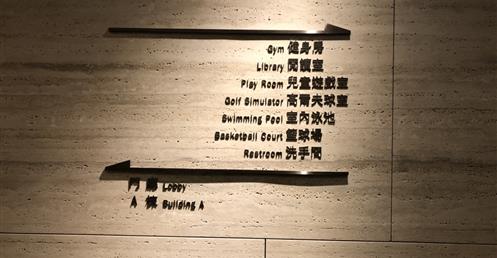 Gym 健身房
Library 閱讀室
Play Room 兒童遊戲室
Golf Simulator 高爾夫球室
Swimming Pool 室內泳池
Basketball Court 籃球場
Restroom 洗手間
門廳 Lobby
A 棟 Building A